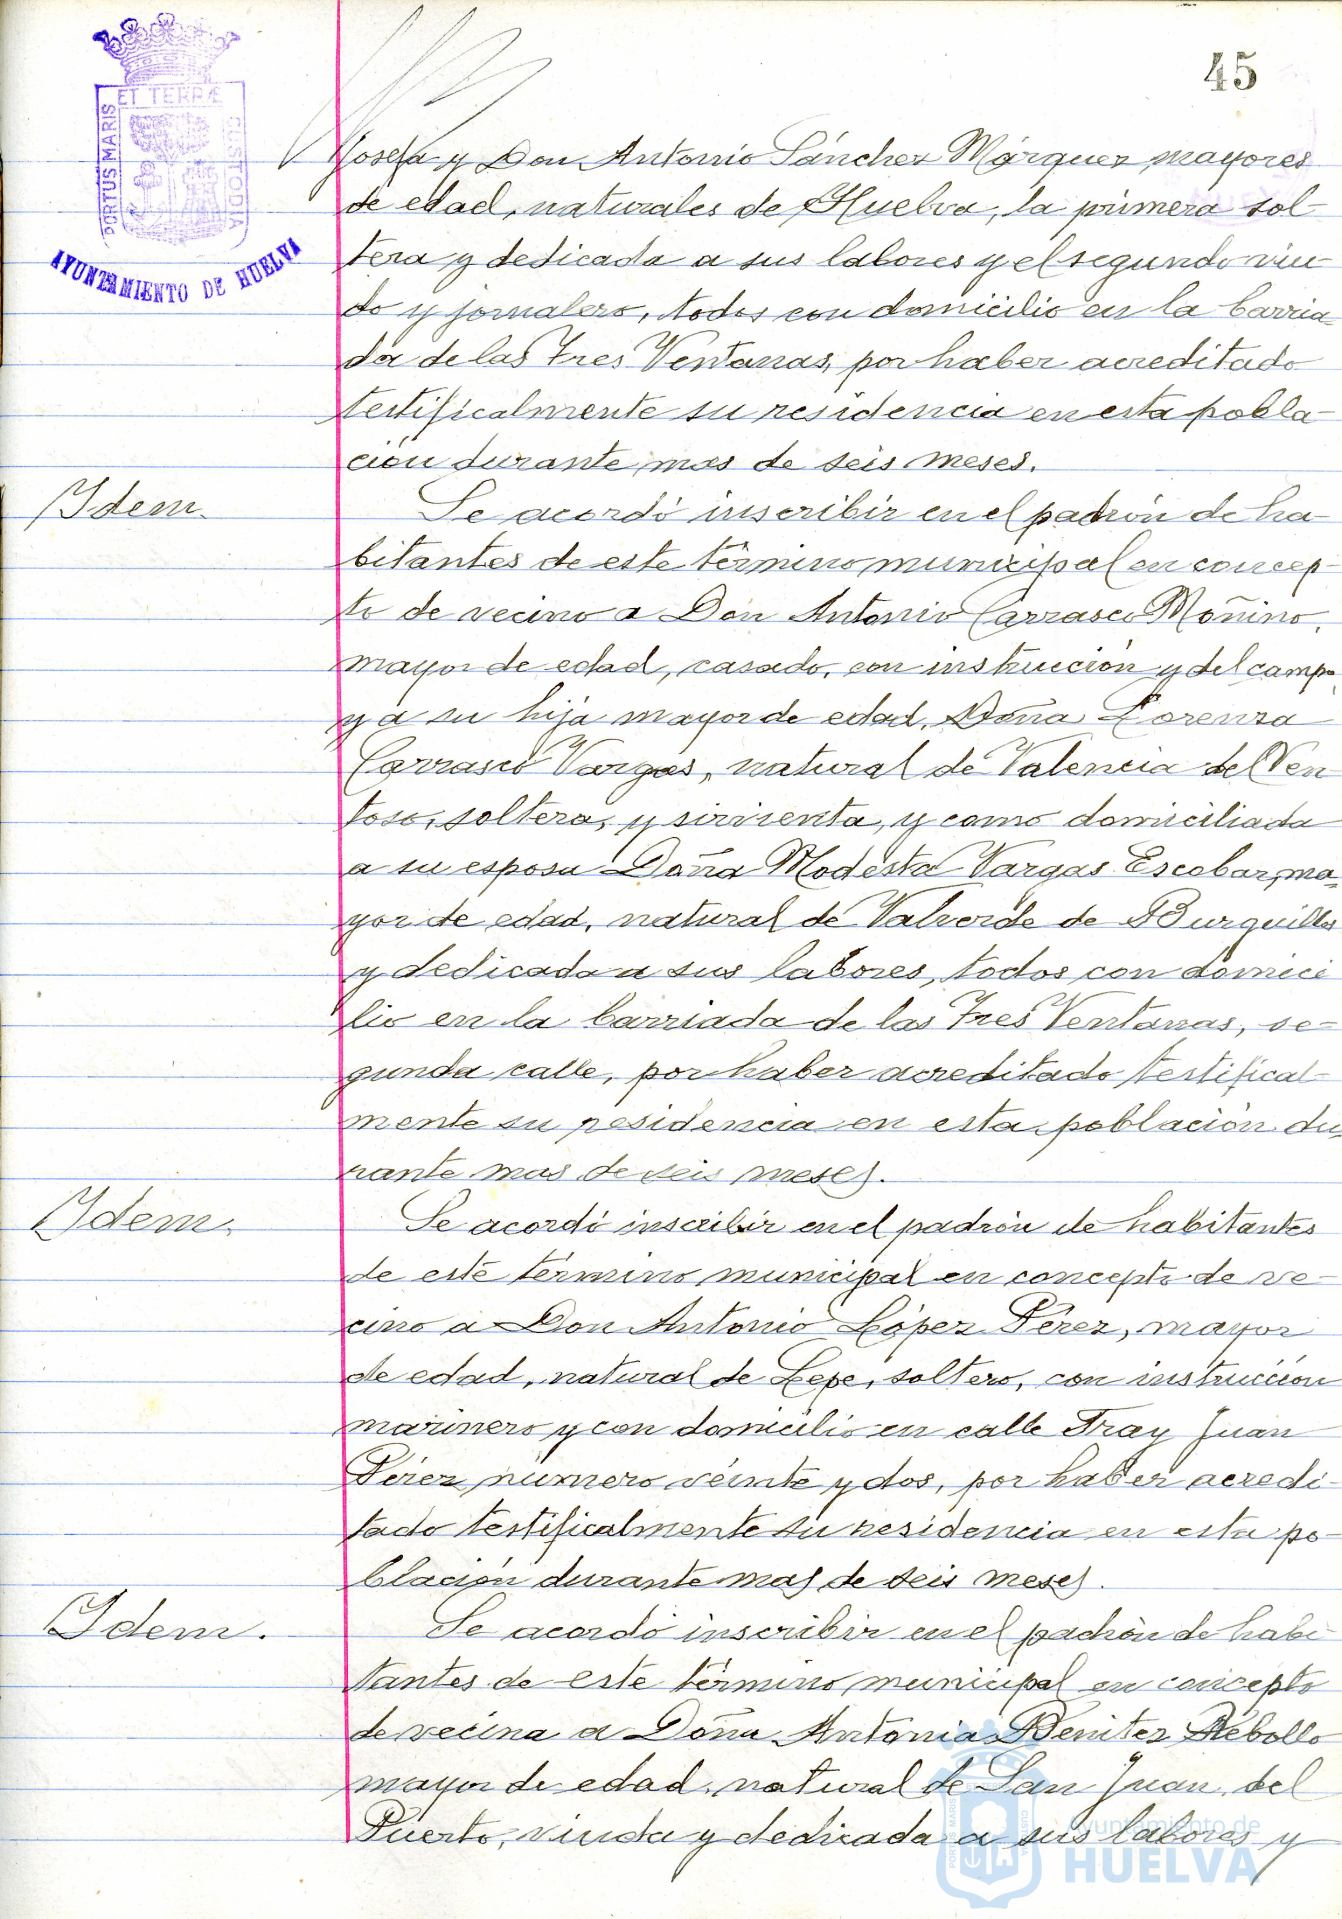 45
ET TERRÆ
PORTUS MARIS
CUSTODIA
AYUNTAMIENTO DE HUELVA
Josefa y Don Antonio Sánchez Márquez, mayores
de edad, naturales de Huelva, la primera sol-
tera y dedicada a sus labores y el segundo viu-
do y jornalero, todos con domicilio en la barria-
da de las Tres Ventanas, por haber acreditado
testificalmente su residencia en esta pobla-
ción durante mas de seis meses.
Idem.
Se acordó inscribir en el padrón de ha-
bitantes de este término municipal en concep-
to de vecino a Don Antonio Carrasco Moñino,
mayor de edad, casado, con instrucción y del campo,
y a su hija mayor de edad, Doña Lorenza
Carrasco Vargas, natural de Valencia del Ven
toso, soltera, y sirvienta, y como domiciliada
a su esposa Doña Modesta Vargas Escobar, ma-
yor de edad, natural de Valverde de Burguillos
y dedicada a sus labores, todos con domici
lio en la barriada de las Tres Ventanas, se-
gunda calle, por haber acreditado testifical-
mente su residencia en esta población du-
rante mas de seis meses.
Idem.
Se acordó inscribir en el padrón de habitantes
de este término municipal en concepto de ve-
cino a Don Antonio López Pérez, mayor
de edad, natural de Lepe, soltero, con instrucción
marinero y con domicilio en calle Fray Juan
Pérez número veinte y dos, por haber acredi-
tado testificalmente su residencia en esta po-
blación durante mas de seis meses.
Idem.
Se acordó inscribir en el padrón de habi-
tantes de este término municipal en concepto
de vecina a Doña Antonia Benitez Rebollo
mayor de edad, natural de San Juan del
Puerto, viuda y dedicada a sus labores y
PORTUS MARIS
CUSTODIA
Ayuntamiento de
HUELVA